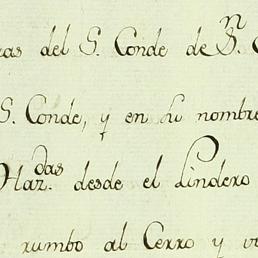 ras del S. Conde de S.n
S. Conde, y en su nombre
Haz.das desde el Lindero
rumbo al Cerro y